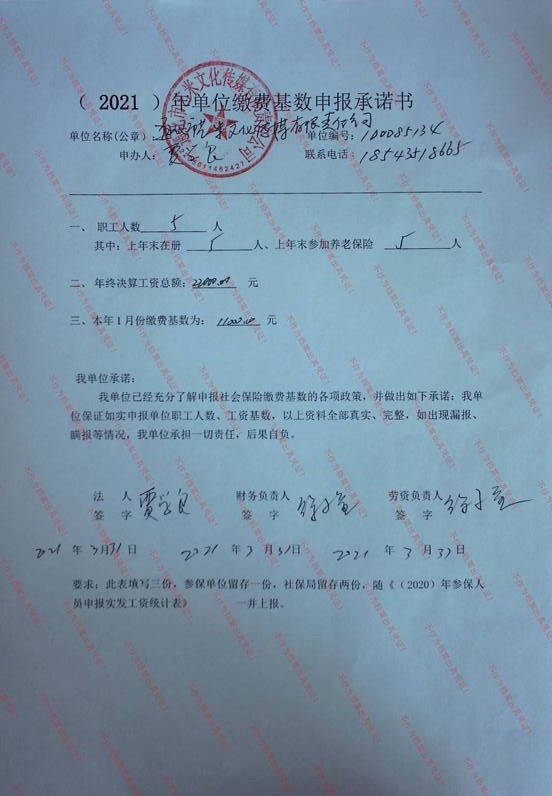 （ 2021 ）年单位缴费基数申报承诺书
单位名称(公章)： 文化传媒有限责任公司 单位编号：100085134
申办人： 贾学良 联系电话：18543518665
一、 职工人数 5 人
其中：上年末在册 5 人、上年末参加养老保险 5 人
二、 年终决算工资总额： 元
三、本年1月份缴费基数为： 元
我单位承诺：
我单位已经充分了解申报社会保险缴费基数的各项政策，并做出如下承诺：我单
位保证如实申报单位职工人数、工资基数，以上资料全部真实、完整，如出现漏报、
瞒报等情况，我单位承担一切责任，后果自负。
法 人 贾学良 财务负责人 劳资负责人
签 字 签 字 签 字
2021 年 3月31日 2021 年 3 月 31 日 2021 年 3 月 31 日
要求：此表填写三份，参保单位留存一份，社保局留存两份，随《（2020）年参保人
员申报实发工资统计表》 一并上报。